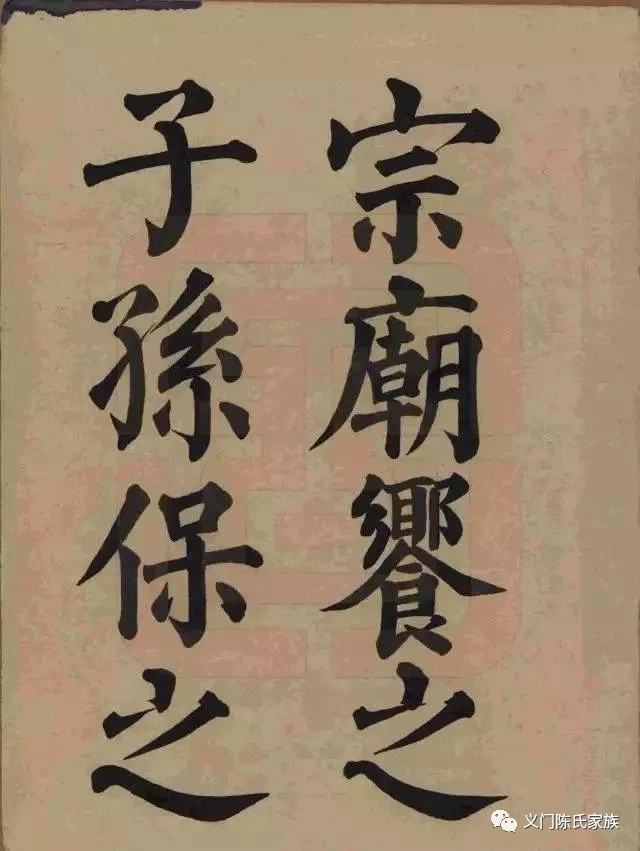 宗廟饗之
子孫保之
义门陈氏家族